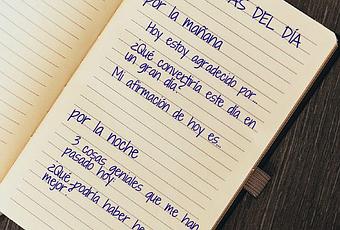 DEL DÍA
por la mañana
Hoy estoy agradecido por...
¿Qué convertiría este día en
un gran día?
Mi afirmación de hoy es...
por la noche
3 cosas geniales que me han
pasado hoy:
¿Qué podría haber
mejor?